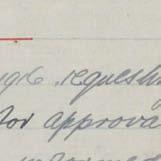 1916. requesti
for approva